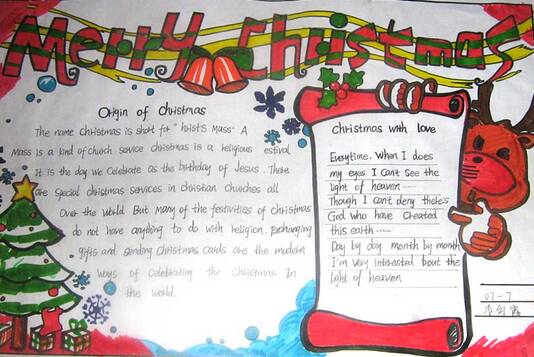 Merry Christmas
Origin of christmas
The name christmas is short for "hrist's Mass" A
Mass is a kind of church service christmas is a religious estival
It is the day we celebrate as the birthday of Jesus. There
are special christmas services in christian churches all
Over the world But many of the festivities of christmas
do not have anything to do with religion. Exchanging
gifts and sending Christmas cards are the modern
ways of celebrating the christmas In
the world.
Christmas with love
Everytime. When I does
my eyes I can't see the
light of heaven
Though I can't deny there's
God who have created
this earth ......
Day by day month by month
I'm very interested bout the
light of heaven
07-7